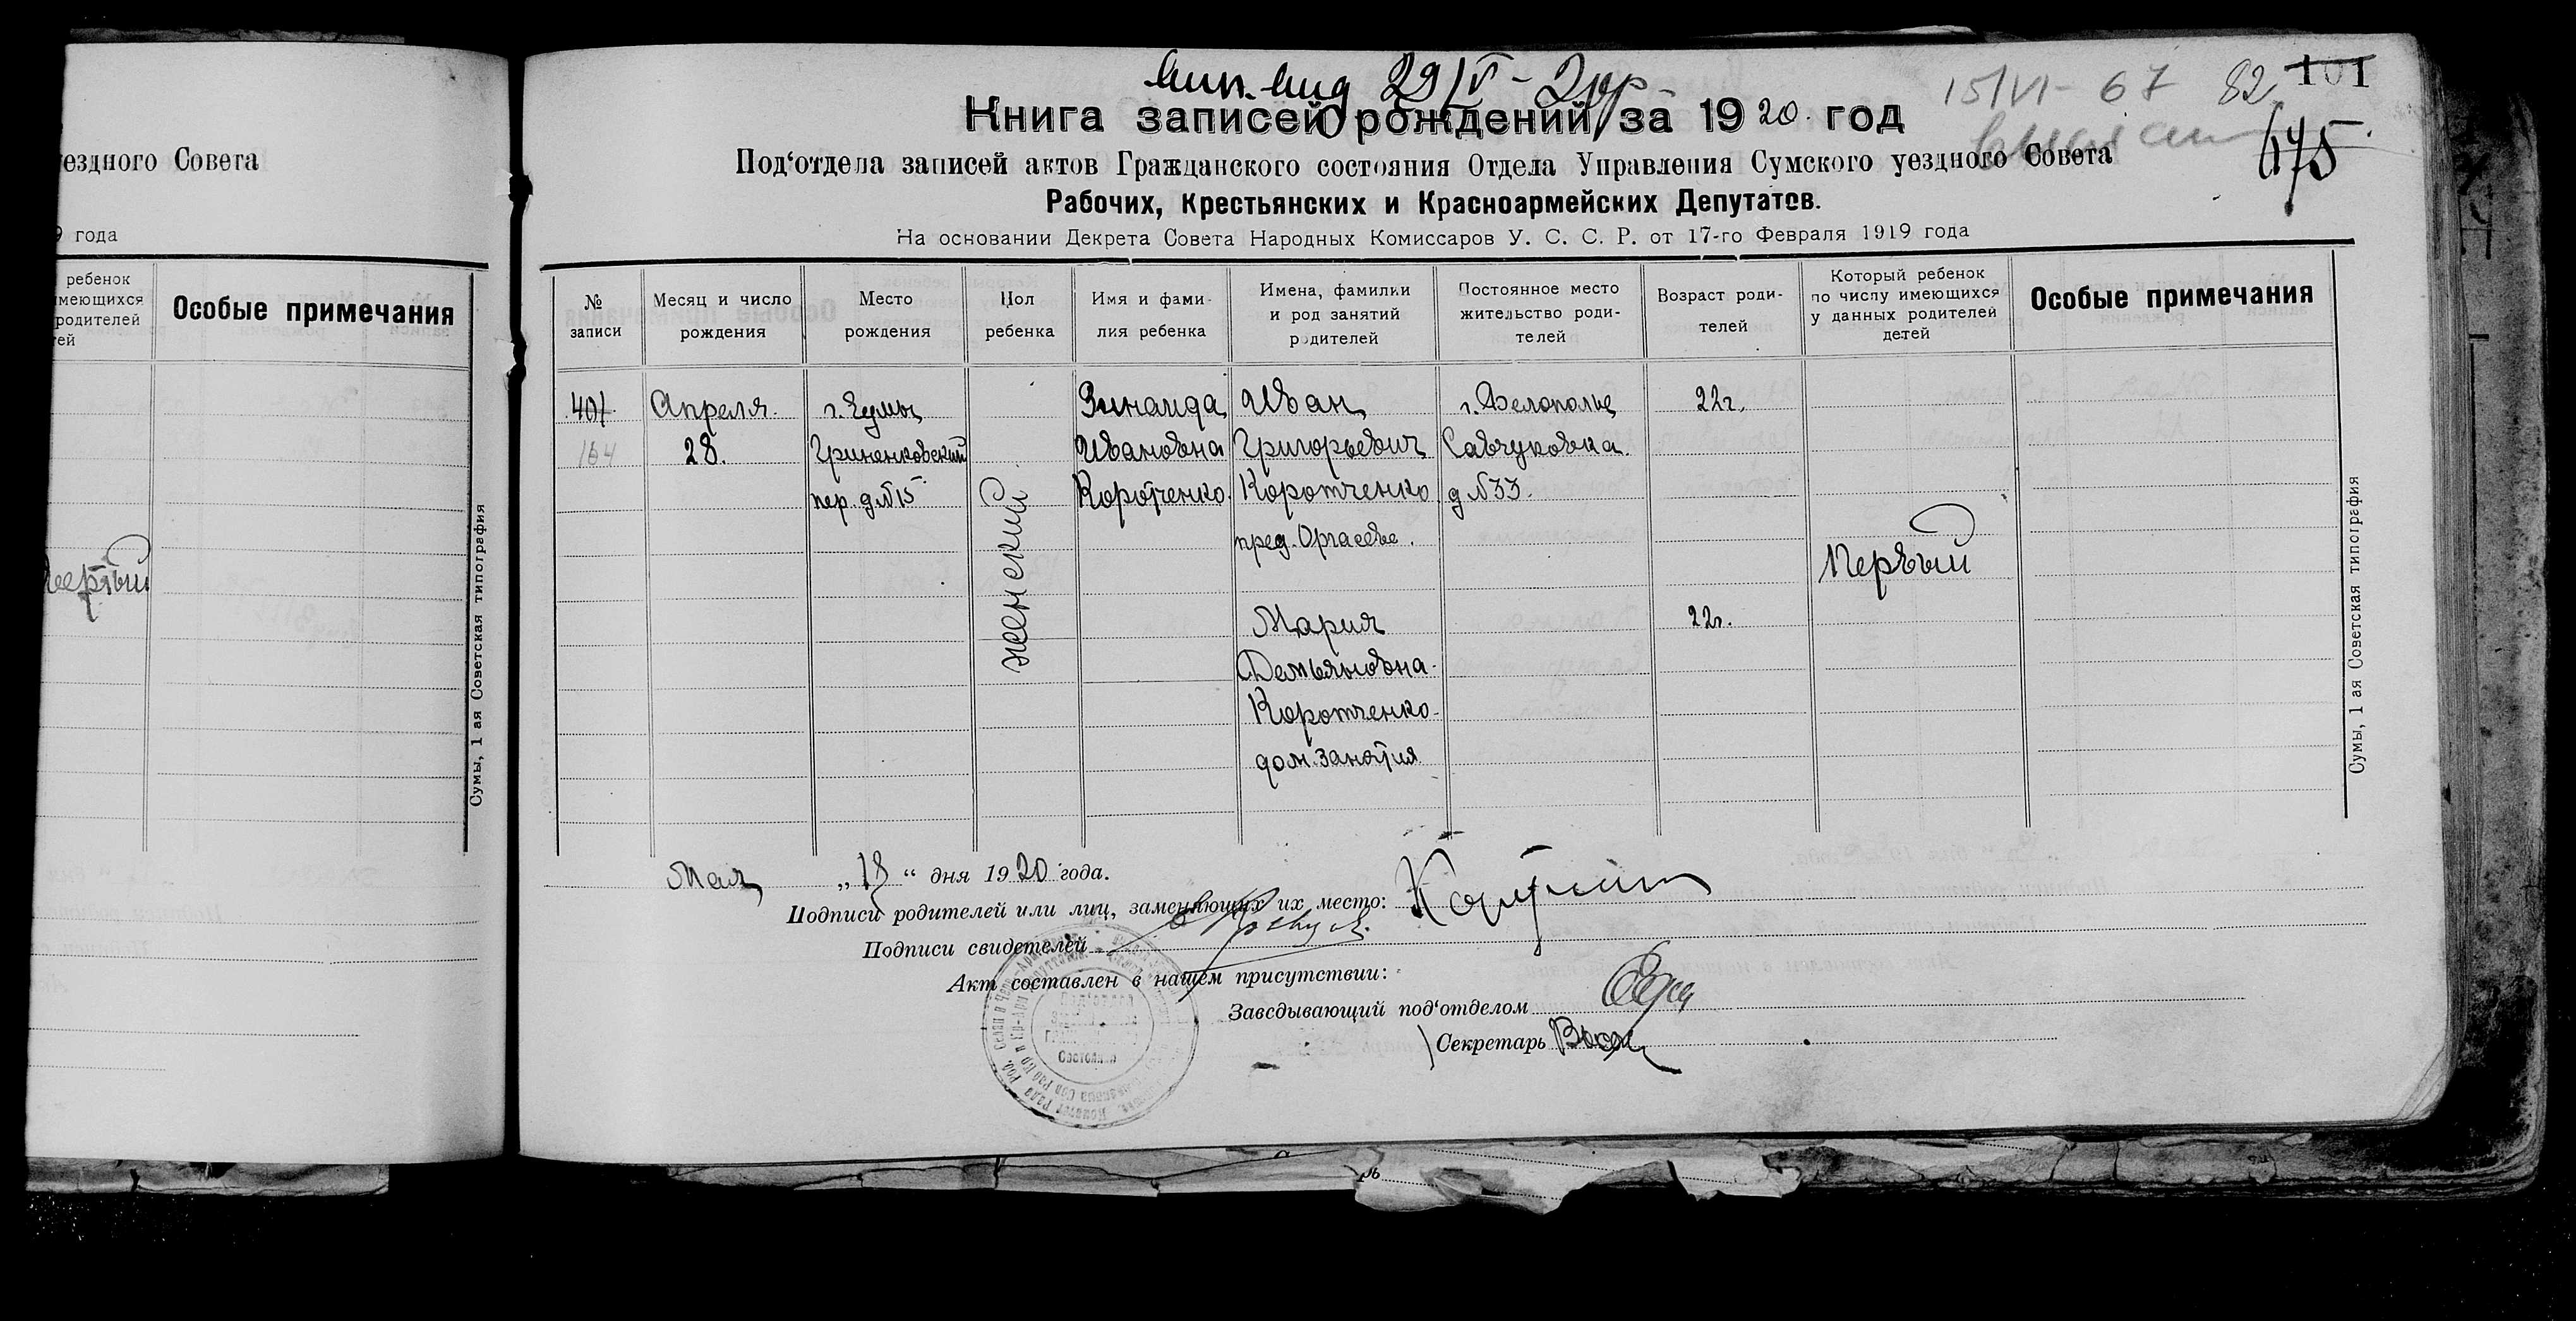 уездного Совета
9 года
ребенок
имеющихся
родителей
тей
Особые примечания
Сумы, 1 ая Советская типография
29/V
15/VI - 67 82 101
Книга записей рождений за 1920. год
675
Под‘отдела записей актов Гражданского состояния Отдела Управления Сумского уездного Совета
Рабочих, Крестьянских и Красноармейских Депутатов.
На основании Декрета Совета Народных Комиссаров У. С. С. Р. от 17-го Февраля 1919 года
№ записи
Месяц и число рождения
Место рождения
Пол ребенка
Имя и фами-
лия ребенка
Имена, фамилии
и род занятий
родителей
Постоянное место
жительство роди-
телей
Возраст роди-
телей
Который ребенок
по числу имеющихся
у данных родителей
детей
Особые примечания
401
164
Апреля
28.
г. Сумы
Гриненковский
пер. д №15
женский
Зинаида
Ивановна
Коротченко.
Иван
Григорьевич
Коротченко
пред.
Мария
Демьяновна
Коротченко
дом. занятия
г. Белополье
Савчуковка.
д №33.
22г.
22г.
Первый
Мая „13“ дня 1920 года.
Подписи родителей или лиц, заменяющих их место:
Подписи свидетелей
Акт составлен в нашем присутствии:
Завсдывающий под‘отделом
Секретарь
Состояния
Сумы, 1 ая Советская типография